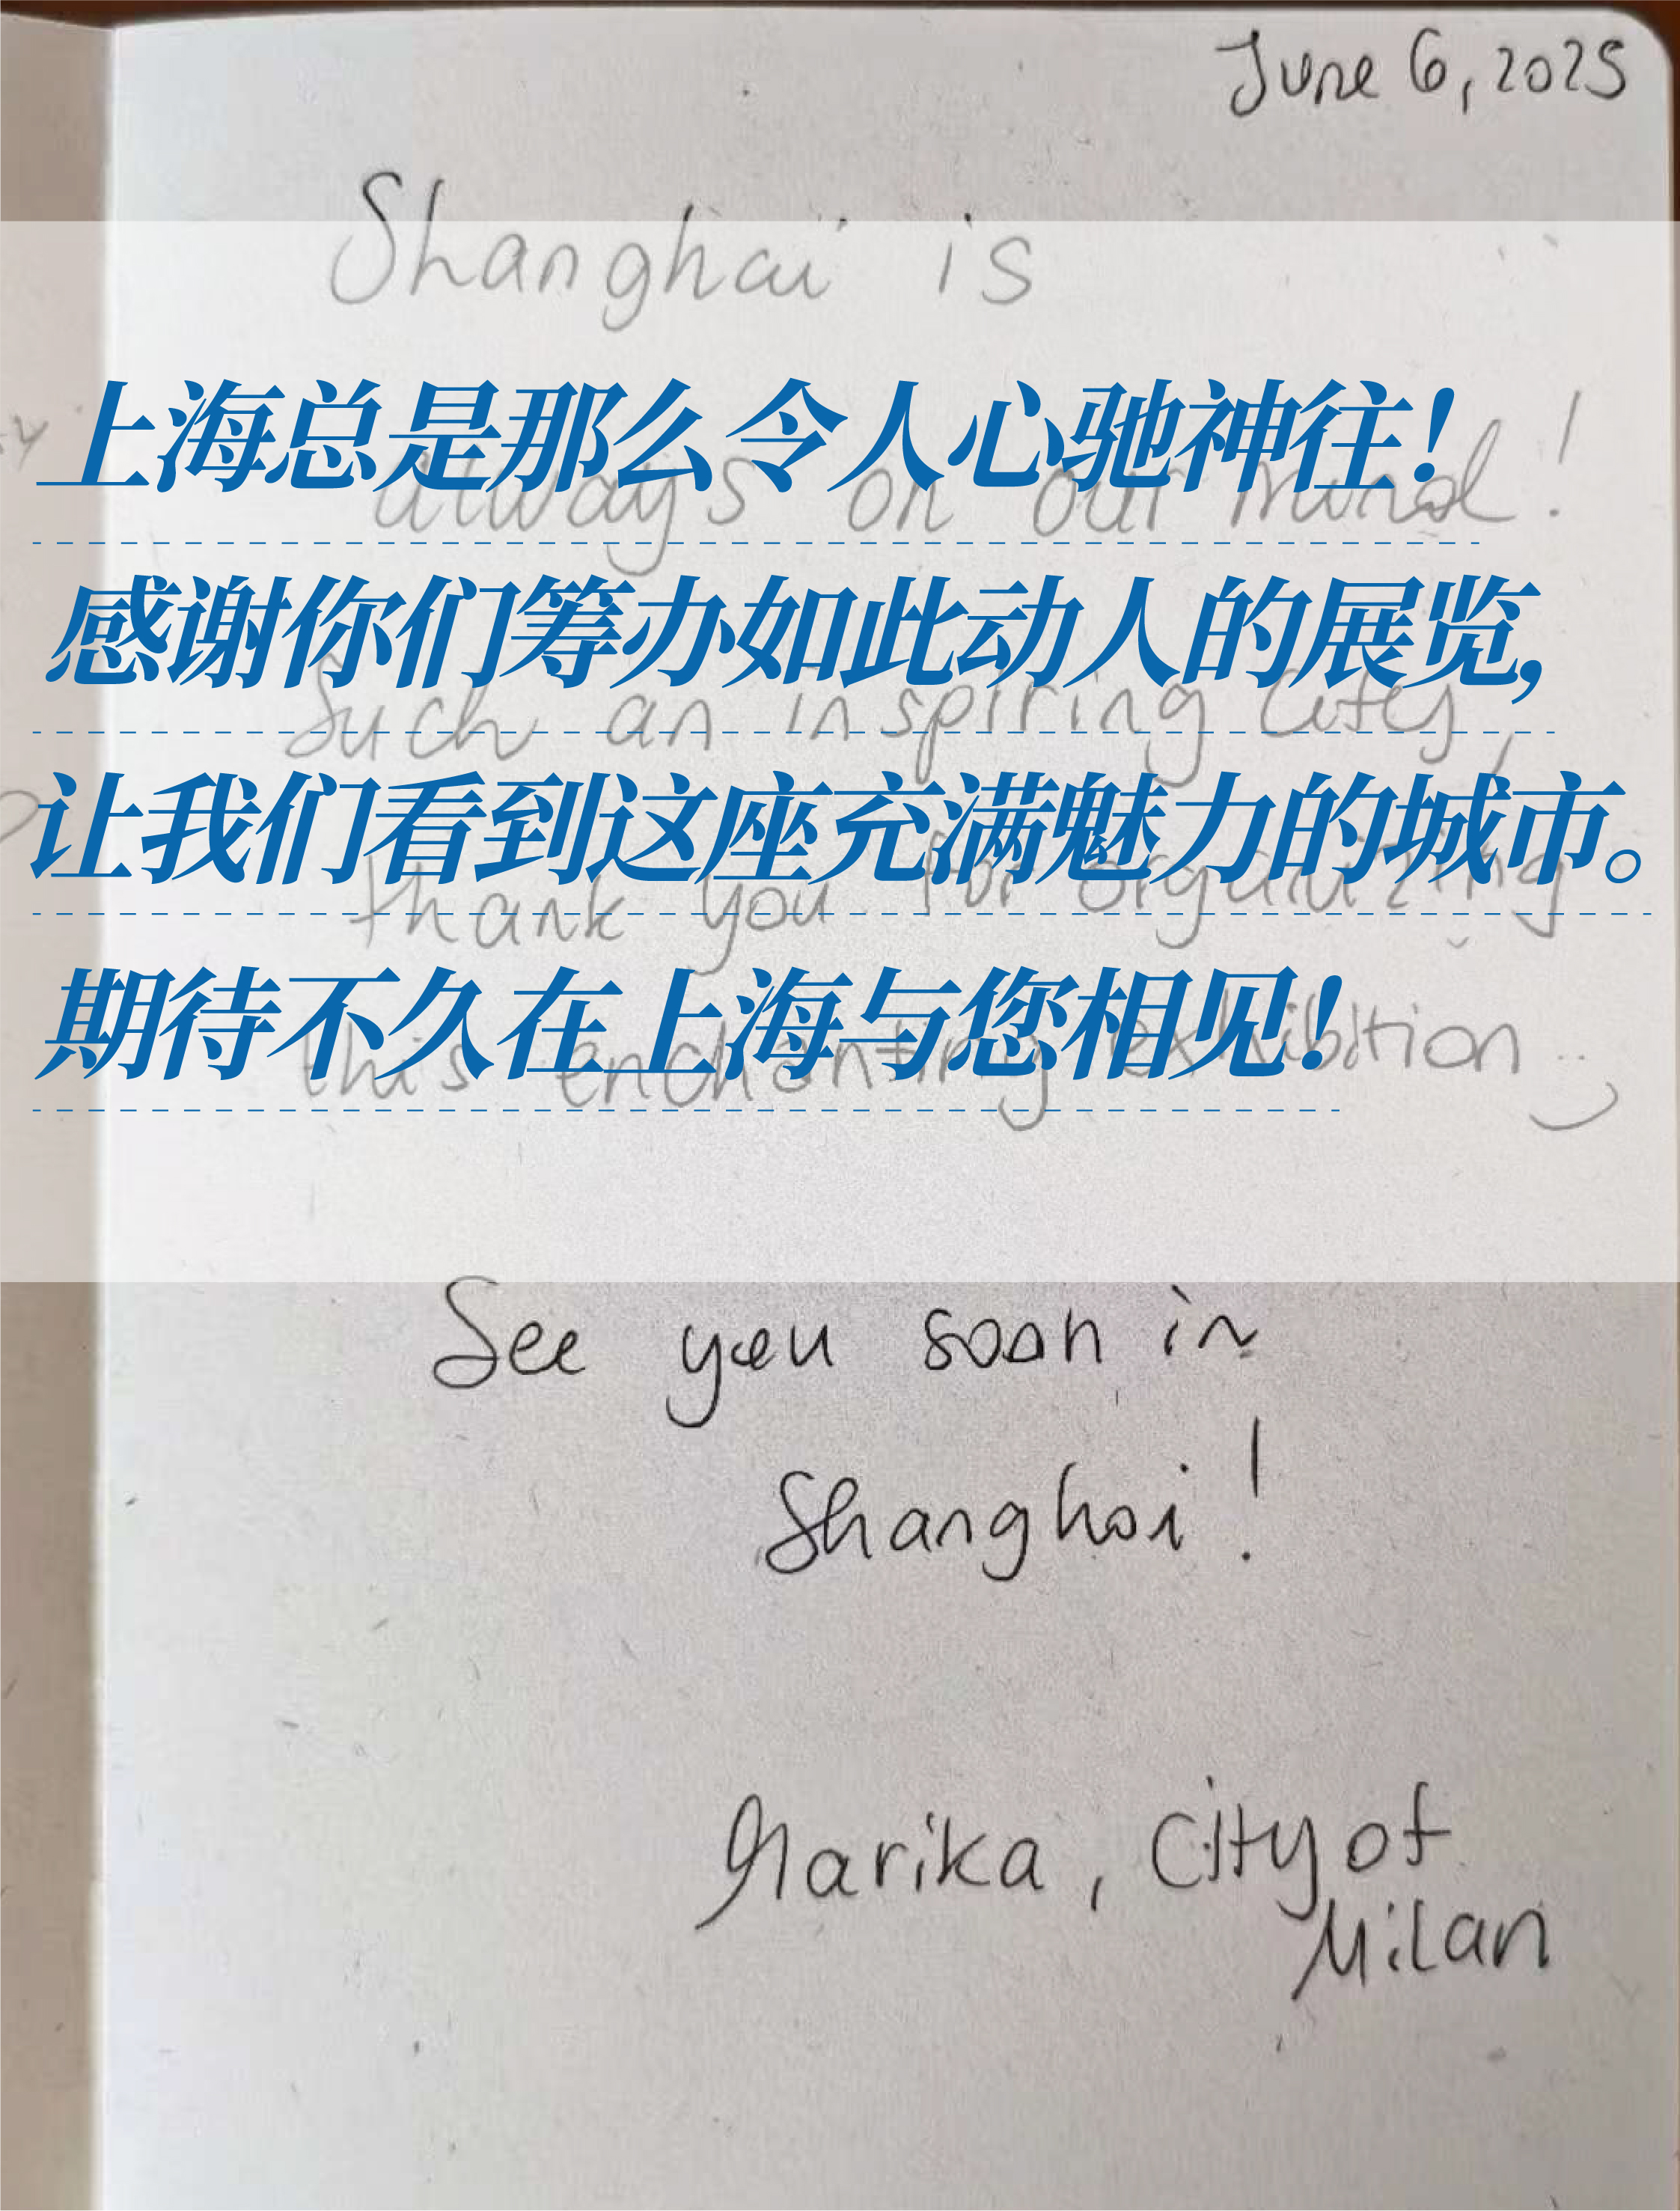 June 6, 2025
Shanghai is
上海总是那么令人心驰神往！
always on our mind!
感谢你们筹办如此动人的展览，
Such an inspiring city,
让我们看到这座充满魅力的城市。
thank you for organizing
期待不久在上海与您相见！
this enchanting exhibition
See you soon in
Shanghai!
Marika, City of
Milan